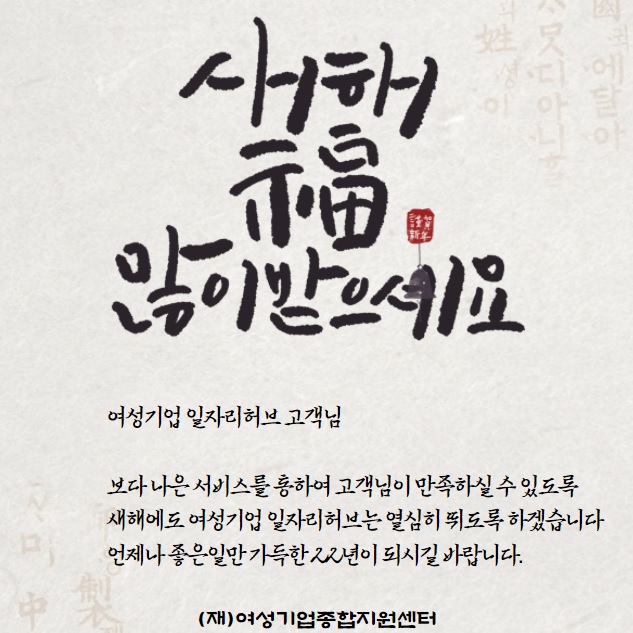 새해
福
많이 받으세요
謹賀
新年
여성기업 일자리허브 고객님
보다 나은 서비스를 통하여 고객님이 만족하실 수 있도록
새해에도 여성기업 일자리허브는 열심히 뛰도록 하겠습니다
언제나 좋은일만 가득한 22년이 되시길 바랍니다.
(재)여성기업종합지원센터